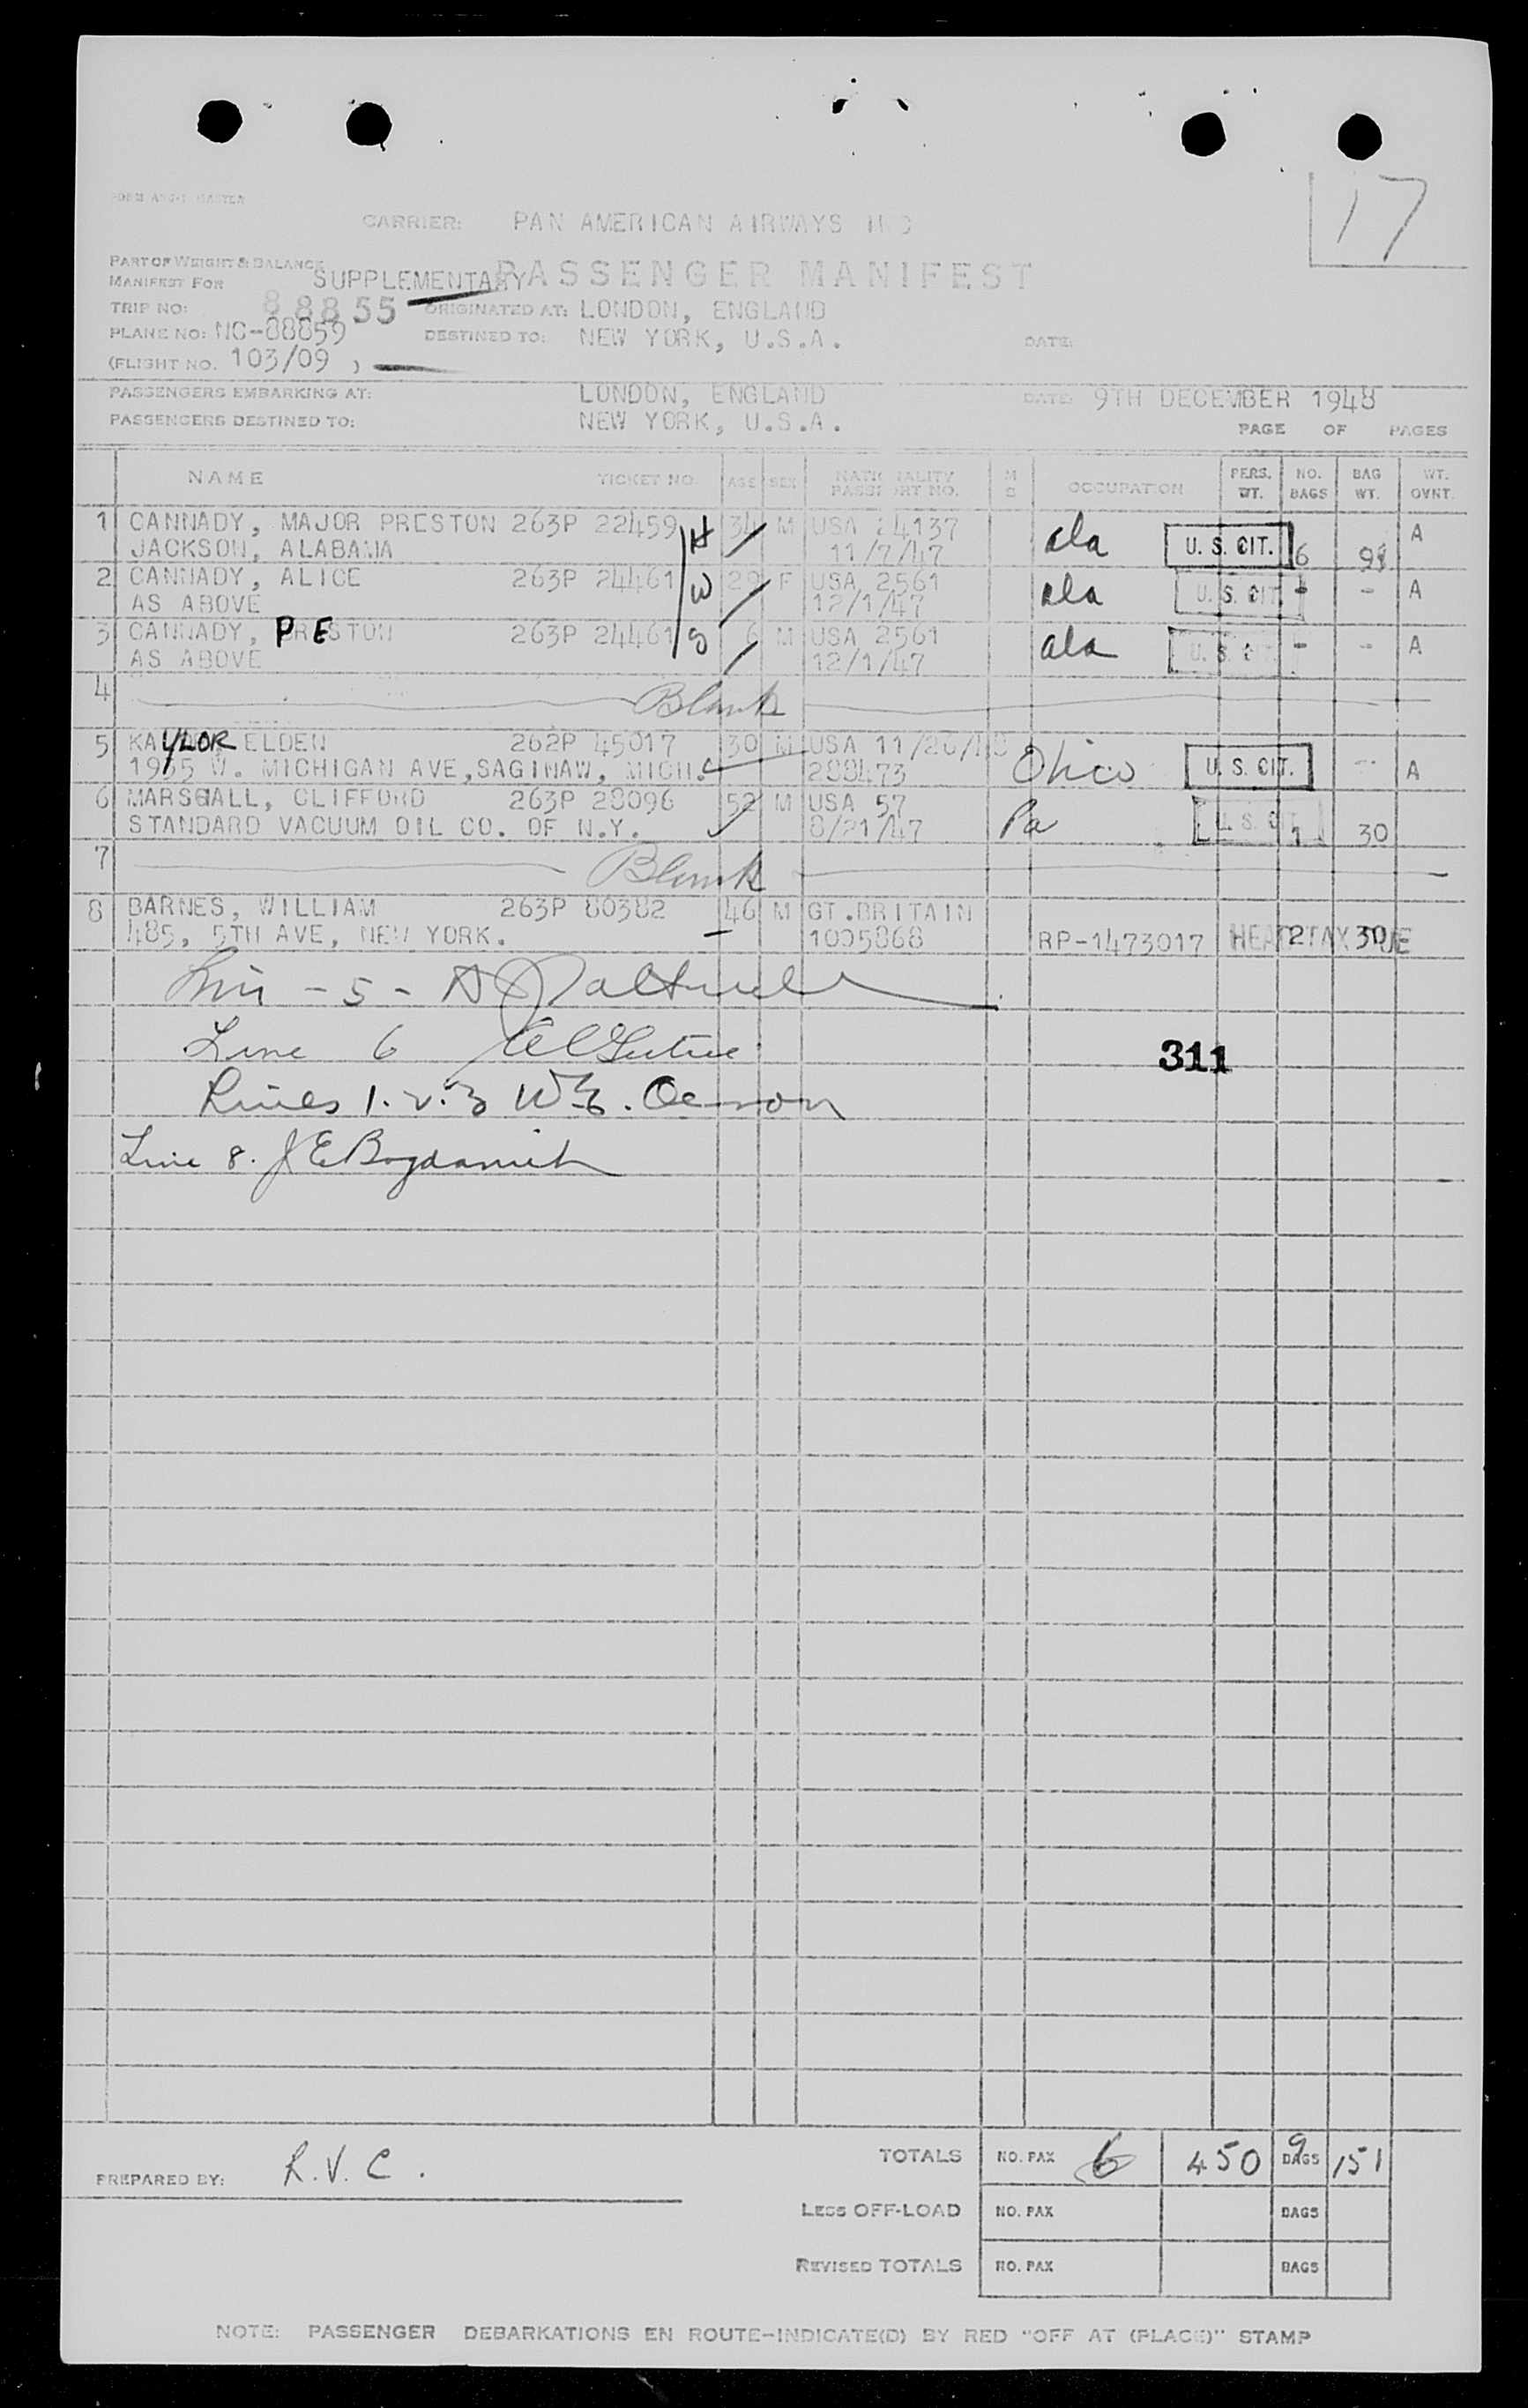 17
CARRIER: PAN AMERICAN AIRWAYS INC
PART OF WEIGHT & BALANCE
MANIFEST FOR SUPPLEMENTARY PASSENGER MANIFEST
TRIP NO: 88855 ORIGINATED AT: LONDON, ENGLAND
PLANE NO: NC-88859 DESTINED TO: NEW YORK, U.S.A. DATE:
(FLIGHT NO. 103/09 )
PASSENGERS EMBARKING AT: LONDON, ENGLAND DATE: 9TH DECEMBER 1948
PASSENGERS DESTINED TO: NEW YORK, U.S.A.
PAGE OF PAGES
NAME TICKET NO. AGE SEX NATIONALITY PASSPORT NO. M C OCCUPATION PERS. WT. NO. BAGS BAG WT. WT. OVNT.
1 CANNADY, MAJOR PRESTON 263P 22459 H 34 M USA 24137 Ala U. S. CIT. 6 A
JACKSON, ALABAMA 11/7/47
2 CANNADY, ALICE 263P 24461 W 29 F USA 2561 Ala U. S. CIT. - - A
AS ABOVE 12/1/47
3 CANNADY, PRESTON 263P 24461 S 6 M USA 2561 Ala U. S. - - A
AS ABOVE 12/1/47
4 Blank
5 KAYLOR ELDEN 262P 45017 30 M USA 11/26/48 Ohio U. S. CIT. - A
W. MICHIGAN AVE, SAGINAW, MICH. 288473
6 MARSHALL, CLIFFORD 263P 28096 52 M USA 57 Pa U. S. CIT. 1 30
STANDARD VACUUM OIL CO. OF N.Y. 8/21/47
7 Blank
8 BARNES, WILLIAM 263P 80382 46 M GT.BRITAIN
485, 5TH AVE, NEW YORK. 1005868 RP-1473017 HEAD TAX DUE 2 30
- 5 -
Line 6
311
Lines 1. 2. 3
Line 8. J E Bogdanich
PREPARED BY: R.V.C.
TOTALS NO. PAX 6 450 9 BAGS 151
LESS OFF-LOAD NO. PAX BAGS
REVISED TOTALS NO. PAX BAGS
NOTE: PASSENGER DEBARKATIONS EN ROUTE-INDICATE(D) BY RED "OFF AT (PLACE)" STAMP